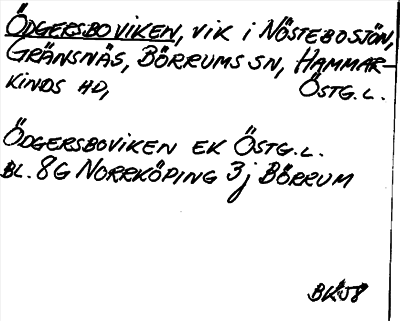 ÖDGERSBOVIKEN, VIK I NÖSTEBOSJÖN,
GRÄNSNÄS, BÖRRUMS SN, HAMMAR-
KINDS HD, ÖSTG. L.
ÖDGERSBOVIKEN EK ÖSTG. L.
BL. 8G NORRKÖPING 3j BÖRRUM
BKJ8